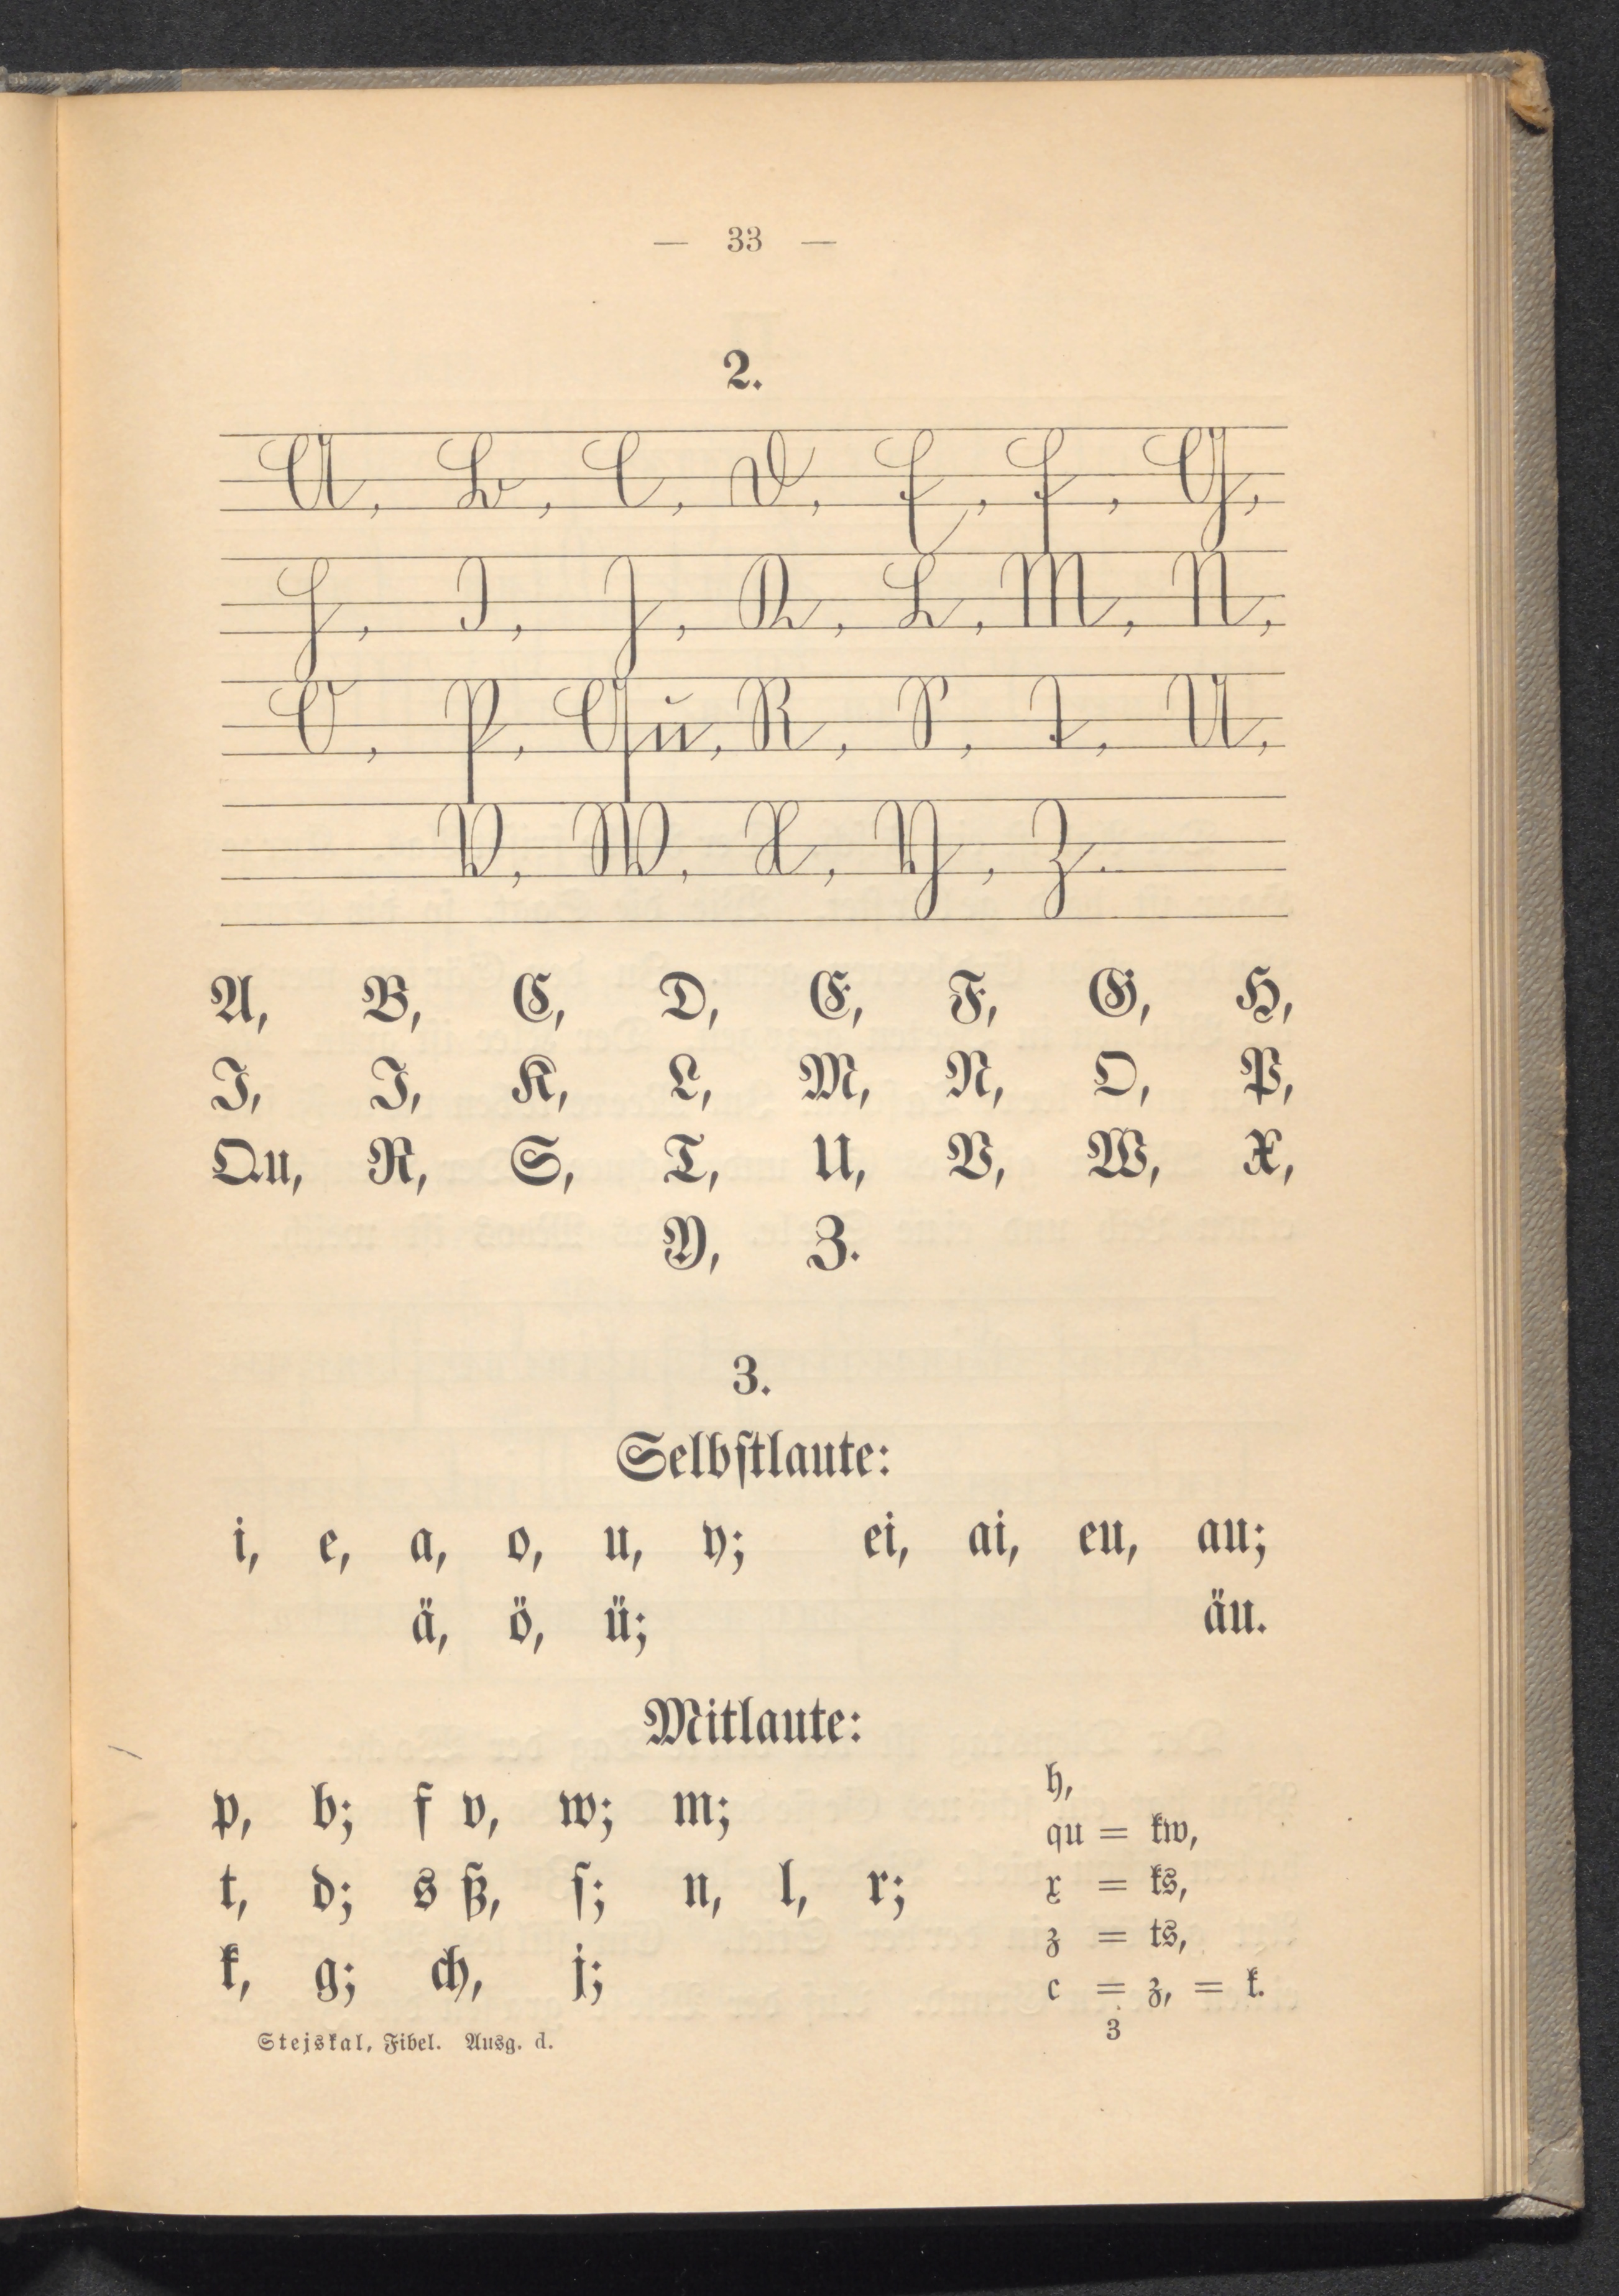 — 33 —
2.
A, B, C, D, E, F, G,
H, I, J, K, L, M, N,
O, P, Qu, R, S, T, U,
V, W, X, Y, Z.
A, B, C, D, E, F, G, H,
I, J, K, L, M, N, O, P,
Qu, R, S, T, U, V, W, X,
Y, Z.
3.
Selbſtlaute:
i, e, a, o, u, y; ei, ai, eu, au;
ä, ö, ü; äu.
Mitlaute:
p, b; f v, w; m;
t, d; s ß, ſ; n, l, r;
k, g; ch, j;
h,
qu = kw,
x = ks,
z = ts,
c = z, = k.
Stejskal, Fibel. Ausg. d.
3